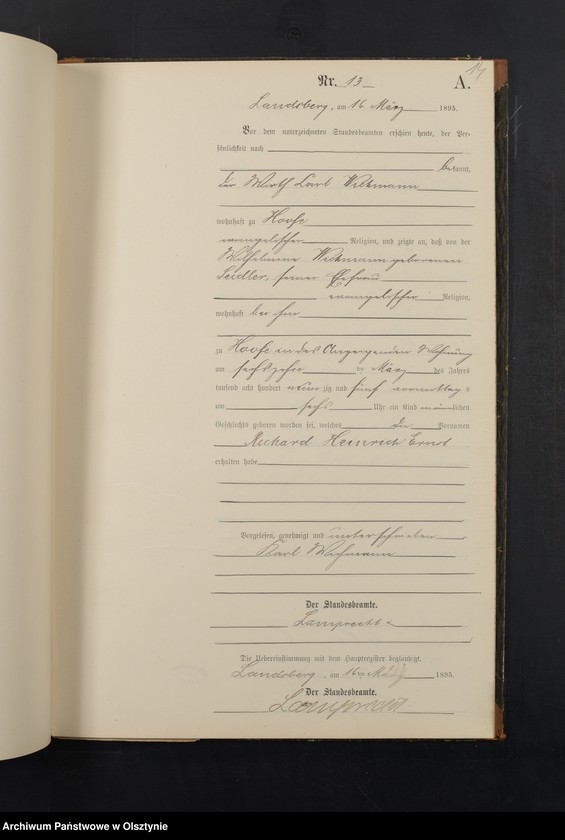 14
Nr. 13 A.
Landsberg, am 16 März 1895.
Vor dem unterzeichneten Standesbeamten erschien heute, der Per-
sönlichkeit nach
bekannt,
der Wirth Carl Wichmann
wohnhaft zu Hoofe
evangelischer Religion, und zeigte an, daß von der
Wilhelmine Wichmann geborenen
Seidler, seiner Ehefrau
evangelischer Religion,
wohnhaft bei ihm
zu Hoofe in des Anzeigenden Wohnung
am sechszehn des März des Jahres
tausend acht hundert neunzig und fünf vormittags
um sechs Uhr ein Kind männlichen
Geschlechts geboren worden sei, welches die Vornamen
Richard Heinrich Ernst
erhalten habe
Vorgelesen, genehmigt und unterschrieben
Karl Wichmann
Der Standesbeamte.
Lamprecht
Die Uebereinstimmung mit dem Hauptregister beglaubigt.
Landsberg, am 16 März 1895.
Der Standesbeamte.
Lamprecht
Archiwum Państwowe w Olsztynie